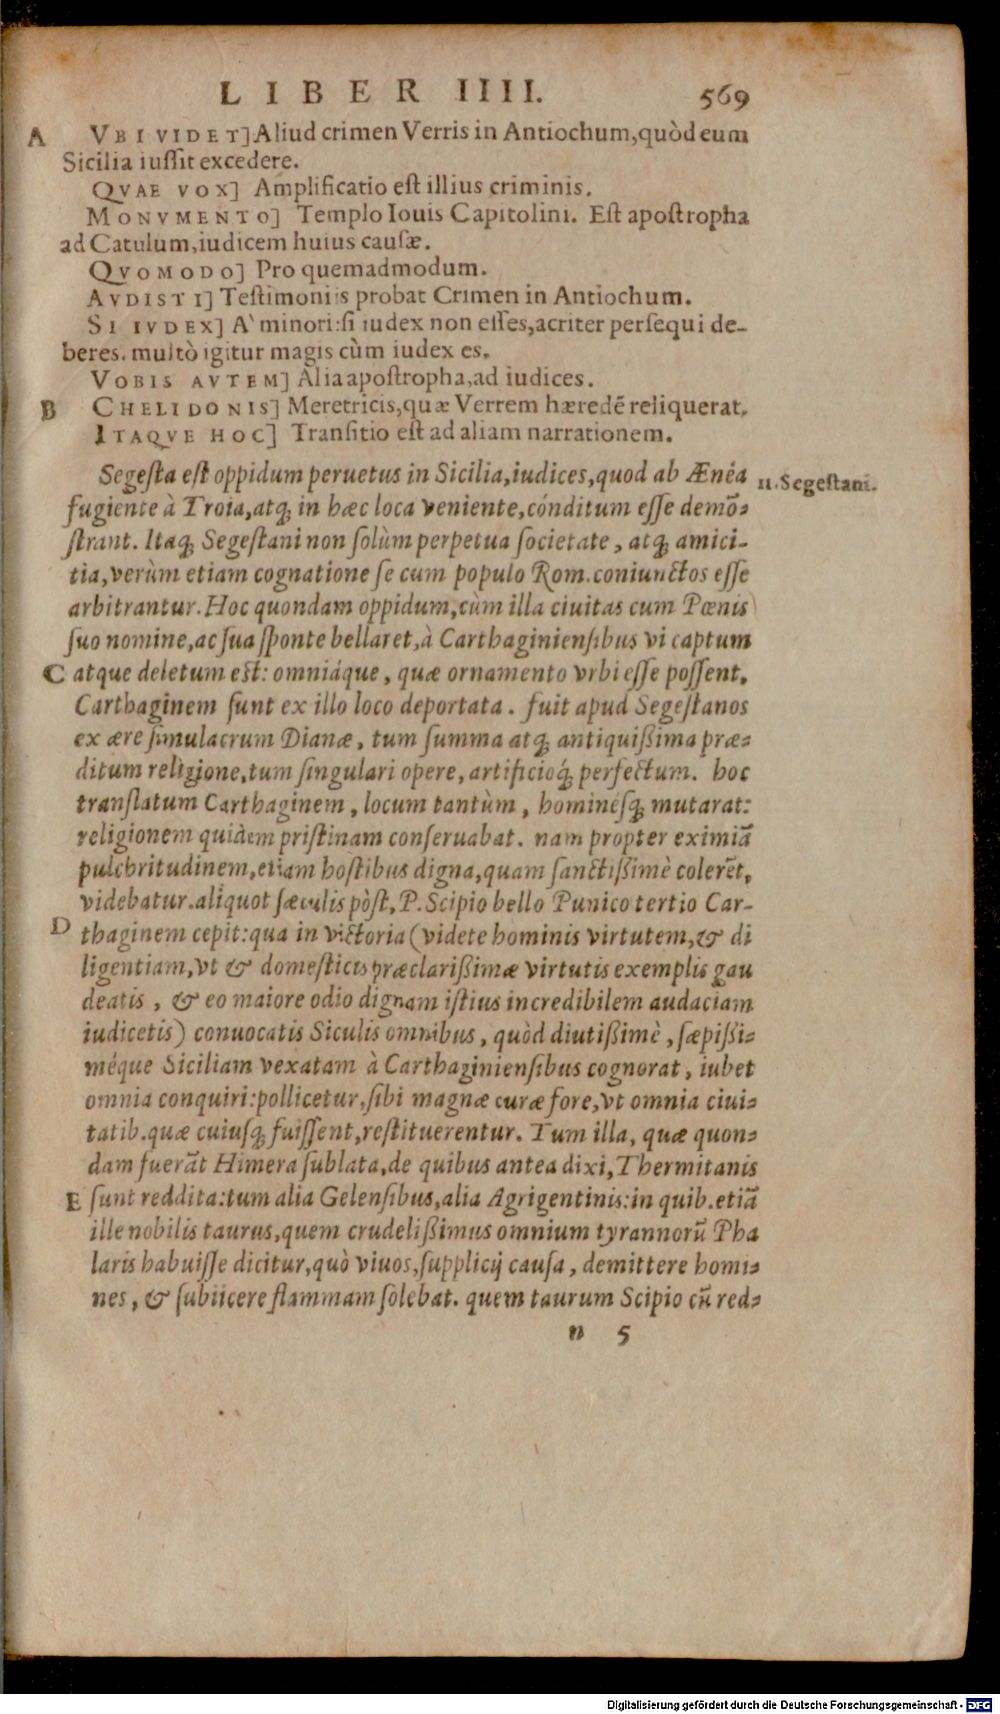 LIBER IIII. 569
A VBI VIDET] Aliud crimen Verris in Antiochum, quòd eum
Sicilia iussit excedere.
QVAE VOX] Amplificatio est illius criminis.
MONVMENTO] Templo Iouis Capitolini. Est apostropha
ad Catulum, iudicem huius causæ.
QVOMODO] Pro quemadmodum.
AVDISTI] Testimoniis probat Crimen in Antiochum.
SI IVDEX] A` minori: si iudex non esses, acriter persequi de-
beres. multò igitur magis cùm iudex es.
VOBIS AVTEM] Alia apostropha, ad iudices.
B CHELIDONIS] Meretricis, quæ Verrem hæredē reliquerat.
ITAQVE HOC] Transitio est ad aliam narrationem.
Segesta est oppidum peruetus in Sicilia, iudices, quod ab Ænéa 11. Segestani.
fugiente à Troia, atq; in hæc loca veniente, cónditum esse demō-
strant. Itaq; Segestani non solùm perpetua societate, atq; amici-
tia, verùm etiam cognatione se cum populo Rom. coniunctos esse
arbitrantur. Hoc quondam oppidum, cùm illa ciuitas cum Pœnis
suo nomine, ac sua sponte bellaret, à Carthaginiensibus vi captum
C atque deletum est: omniáque, quæ ornamento vrbi esse possent,
Carthaginem sunt ex illo loco deportata. fuit apud Segestanos
ex ære simulacrum Dianæ, tum summa atq; antiquißima præ-
ditum religione, tum singulari opere, artificioq́; perfectum. hoc
translatum Carthaginem, locum tantùm, hominésq; mutarat:
religionem quidem pristinam conseruabat. nam propter eximiā
pulchritudinem, etiam hostibus digna, quam sanctißimè colerēt,
videbatur. aliquot sæculis pòst, P. Scipio bello Punico tertio Car-
D thaginem cepit: qua in victoria (videte hominis virtutem, & di
ligentiam, vt & domesticis præclarißimæ virtutis exemplis gau
deatis, & eo maiore odio dignam istius incredibilem audaciam
iudicetis) conuocatis Siculis omnibus, quòd diutißimè, sæpißi-
méque Siciliam vexatam à Carthaginiensibus cognorat, iubet
omnia conquiri: pollicetur, sibi magnæ curæ fore, vt omnia ciui-
tatib. quæ cuiusq; fuissent, restituerentur. Tum illa, quæ quon-
dam fuerāt Himera sublata, de quibus antea dixi, Thermitanis
E sunt reddita: tum alia Gelensibus, alia Agrigentinis: in quib. etiā
ille nobilis taurus, quem crudelißimus omnium tyrannorū Pha
laris habuisse dicitur, quò viuos, supplicij causa, demittere homi-
nes, & subiicere flammam solebat. quem taurum Scipio cū red-
n 5
Digitalisierung gefördert durch die Deutsche Forschungsgemeinschaft - DFG